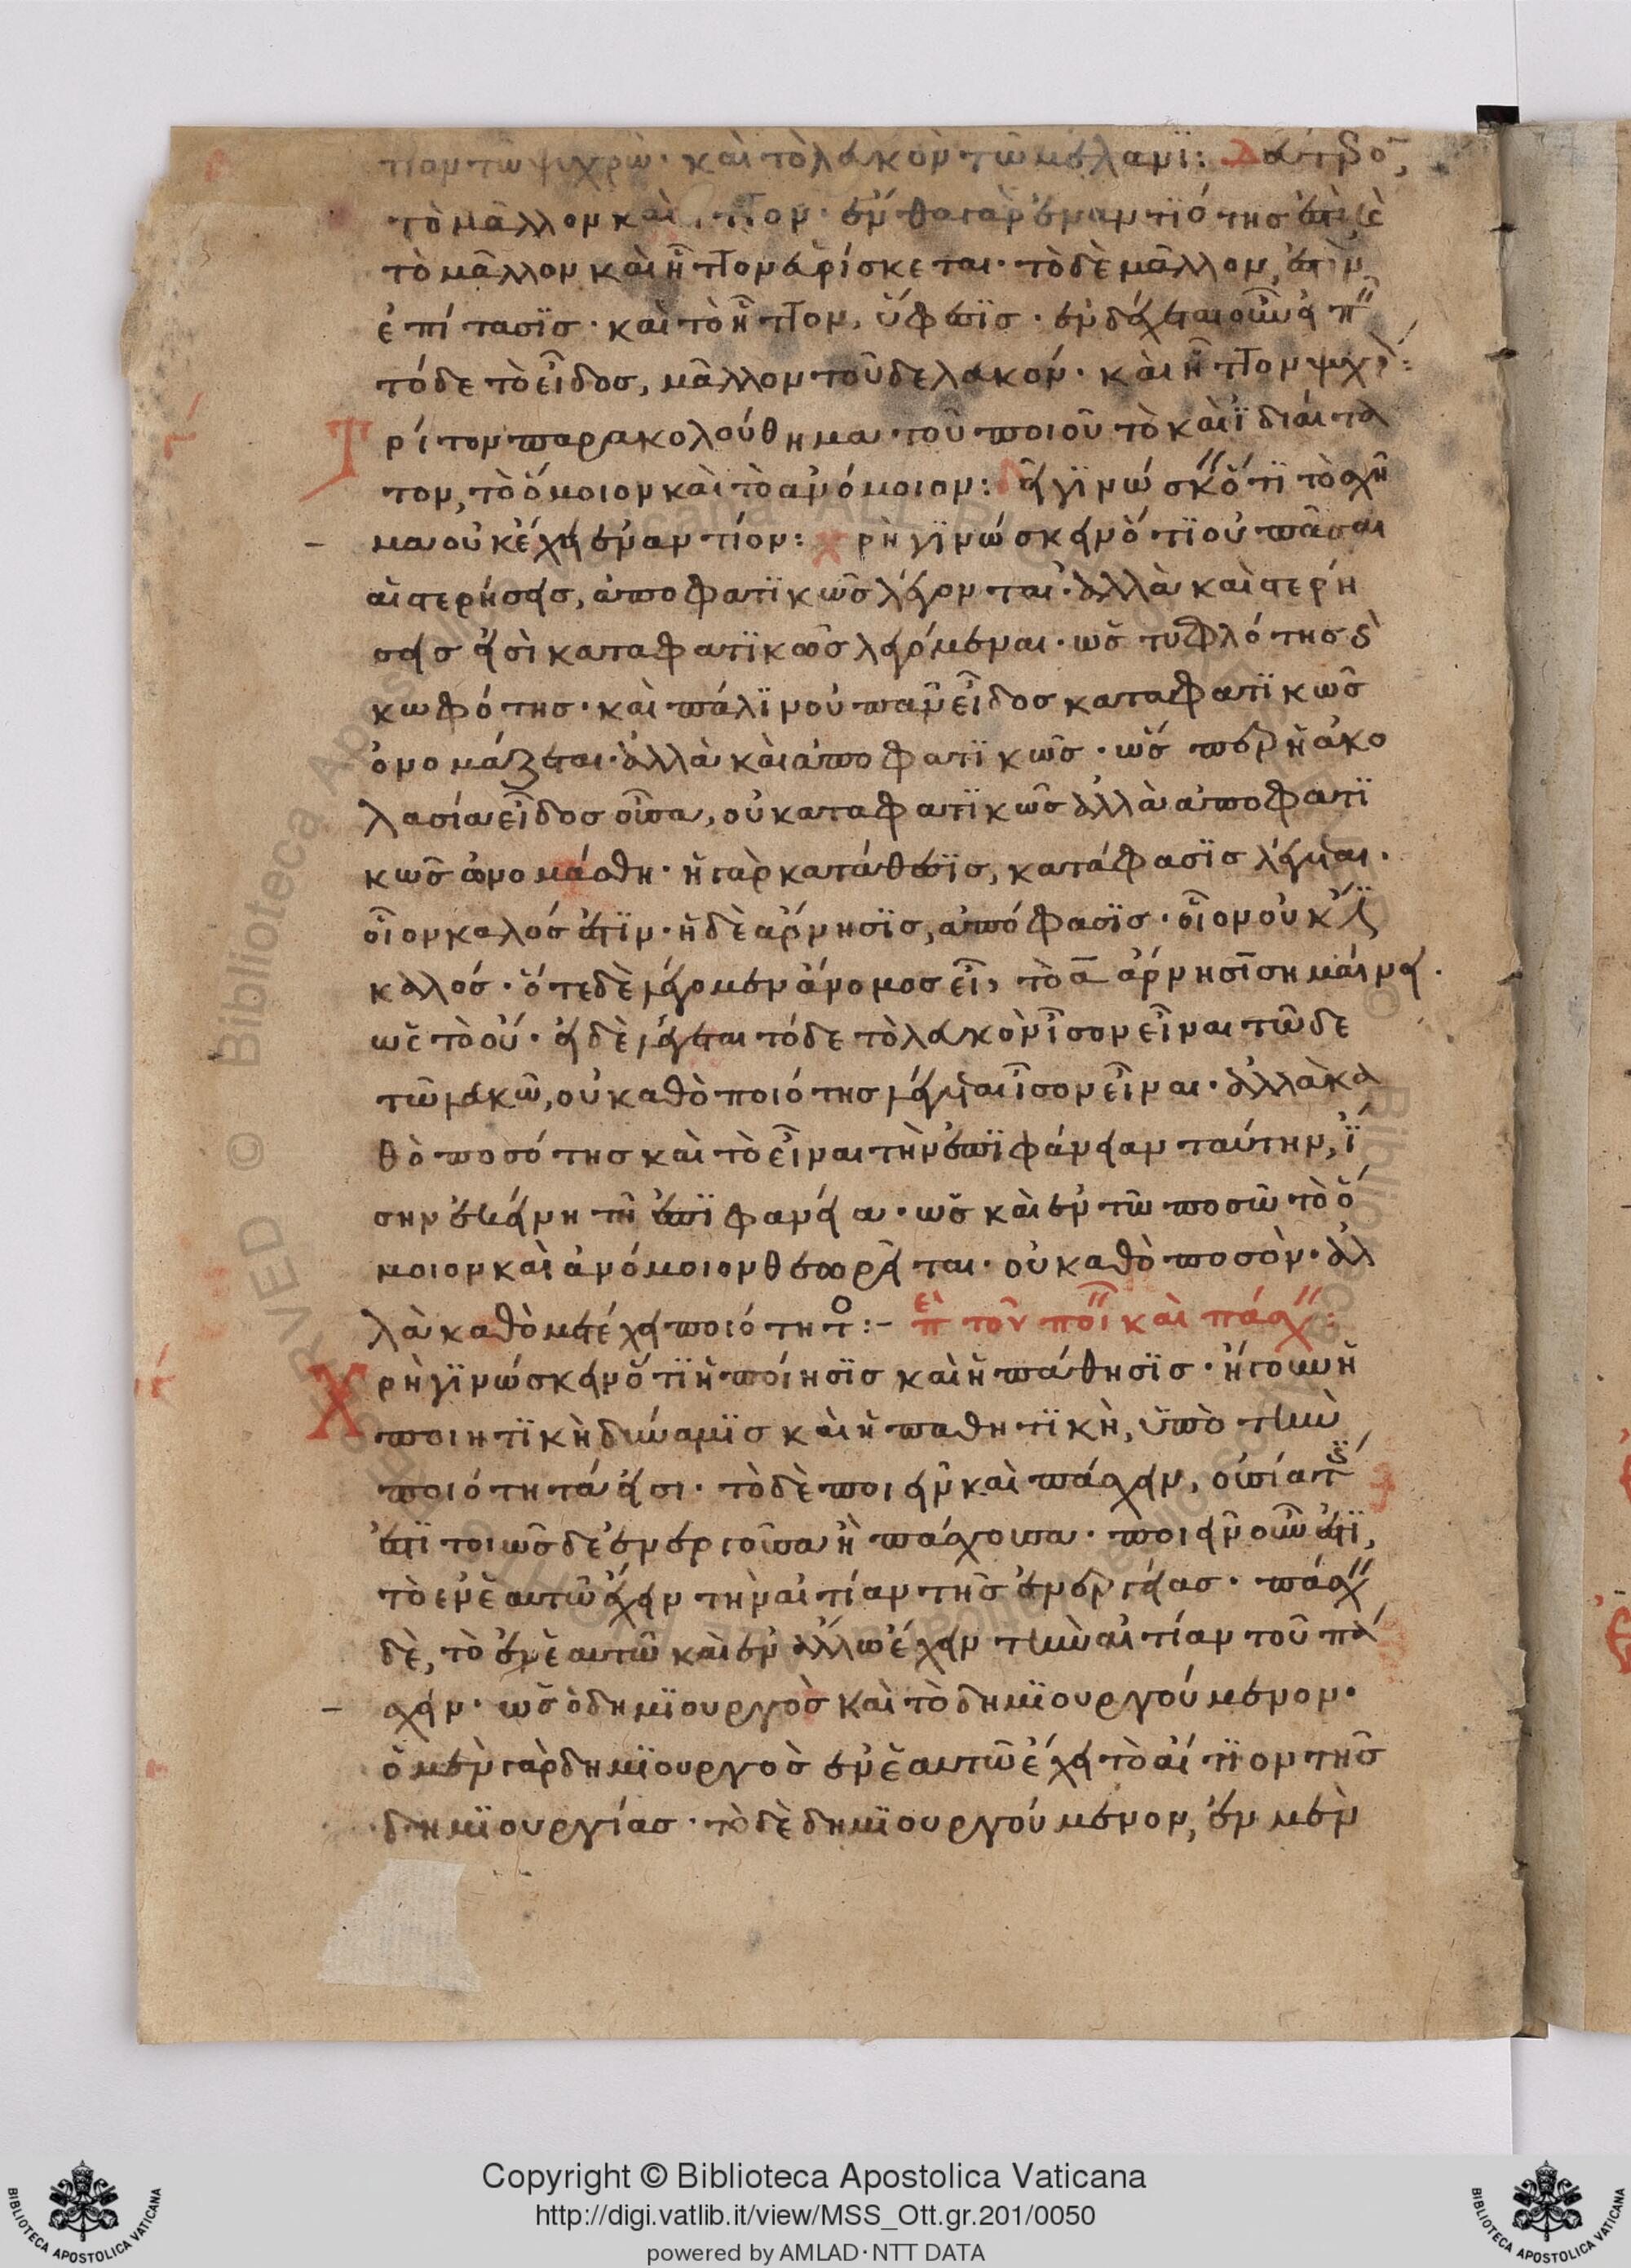 τίον τῶ ψυχρῶ· καὶ τὸ λευκὸν τῶ μέλανι: Δεύτερον,
τὸ μᾶλλον καὶ ἧττον· ἔνθα γὰρ ἐναντιότης ἐστὶ, ἐκεῖ
τὸ μᾶλλον καὶ ἧττον εὑρίσκεται· τὸ δὲ μᾶλλον, ἐστὶν
ἐπίτασϊς· καὶ τὸ ἧττον, ὕφεσϊς· ἐνδέχεται οὖν εἰπεῖν
τόδε τὸ εἶδος, μᾶλλον τοῦδε λευκόν· καὶ ἧττον ψυχρόν:
Τρίτον παρακολούθημα τοῦ ποιοῦ τὸ καὶ ϊδιαίτα
τον, τὸ ὅμοιον καὶ τὸ ἀνόμοιον: δεῖ γϊνώσκειν ὅτϊ τὸ σχῆ
μα οὐκ ἔχει ἐναντίον: χρὴ γϊνώσκειν ὅτϊ οὐ πᾶσαι
αἱ στερήσεις, ἀποφατϊκῶς λέγονται· ἀλλὰ καὶ στερή
σεις εἰσὶ καταφατϊκῶς λεγόμεναι· ὡς τυφλότης καὶ
κωφότης· καὶ πάλϊν οὐ πᾶν εἶδος καταφατϊκῶς
ὀνομάζεται· ἀλλὰ καὶ ἀποφατϊκῶς· ὡς περ ἡ ἀκο
λασία εἶδος οὖσα, οὐ καταφατϊκῶς ἀλλὰ ἀποφατϊ
κῶς ὠνομάσθη· ἡ γὰρ κατάθεσϊς, κατάφασϊς λέγεται·
οἷον καλός ἐστϊν· ἡ δὲ ἄρνησϊς, ἀπόφασϊς· οἷον οὐκ ἔστϊ
καλός· ὅτε δὲ λέγομεν ἄνομος εἶ, τὸ α ἄρνησϊν σημαίνει·
ὡς τὸ οὐ· εἰ δὲ λέγεται τόδε τὸ λευκὸν ἶσον εἶναι τῶδε
τῶ λευκῶ, οὐ καθὸ ποιότης λέγεται ἶσον εἶναι· ἀλλὰ κα
θὸ ποσότης καὶ τὸ εἶναι τὴν ἐπϊφάνειαν ταύτην, ἴ
σην ἐκείνη τῆ ἐπϊφανεία· ὡς καὶ ἐν τῶ ποσῶ τὸ ὅ
μοιον καὶ ἀνόμοιον θεωρεῖται· οὐ καθὸ ποσὸν· ἀλ
λὰ καθὸ μετέχει ποιότητος:- περὶ τοῦ ποιεῖν καὶ πάσχειν:
Χρὴ γϊνώσκειν ὅτϊ ἡ ποίησϊς καὶ ἡ πάθησϊς· ἤγουν ἡ
ποιητϊκὴ δύναμϊς καὶ ἡ παθητϊκὴ, ὑπὸ τὴν
ποιότητά εἰσι· τὸ δὲ ποιεῖν καὶ πάσχειν, οὐσία τίς
ἐστϊ τοιῶσδε ἐνεργοῦσα ἢ πάσχουσα· ποιεῖν οὖν ἐστϊ,
τὸ ἐν ἑαυτῶ ἔχειν τὴν αἰτίαν τῆς ἐνεργείας· πάσχειν
δὲ, τὸ ἐν ἑαυτῶ καὶ ἐν ἄλλω ἔχειν τὴν αἰτίαν τοῦ πά
σχειν· ὡς ὁ δημϊουργὸς καὶ τὸ δημϊουργούμενον·
ὁ μὲν γὰρ δημϊουργὸς ἐν ἑαυτῶ ἔχει τὸ αἴτϊον τῆς
δημϊουργίας· τὸ δὲ δημϊουργούμενον, ἐν μὲν
Copyright © Biblioteca Apostolica Vaticana
http://digi.vatlib.it/view/MSS_Ott.gr.201/0050
powered by AMLAD·NTT DATA
BIBLIOTECA APOSTOLICA VATICANA
BIBLIOTECA APOSTOLICA VATICANA